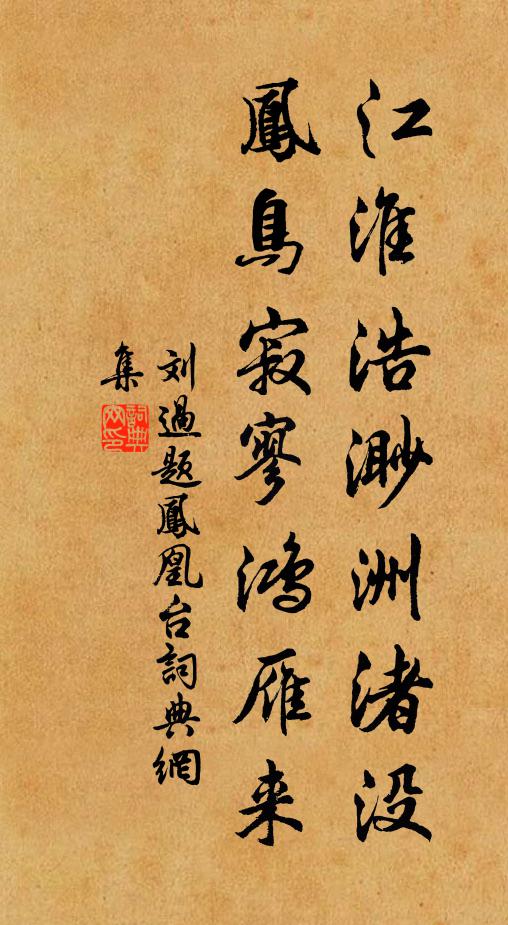 江淮浩渺洲渚没
鳳鳥寂寥鴻雁来
刘過题鳳凰台詞典網
集
詞典網印